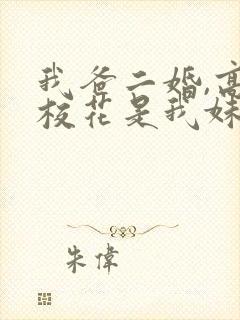 我爸二婚,高
校花是我妹
朱偉